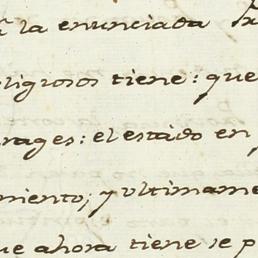 la enunciada
ligiosos tiene: que
rages: el estado en
miento, y ultimame
ue ahora tiene se p